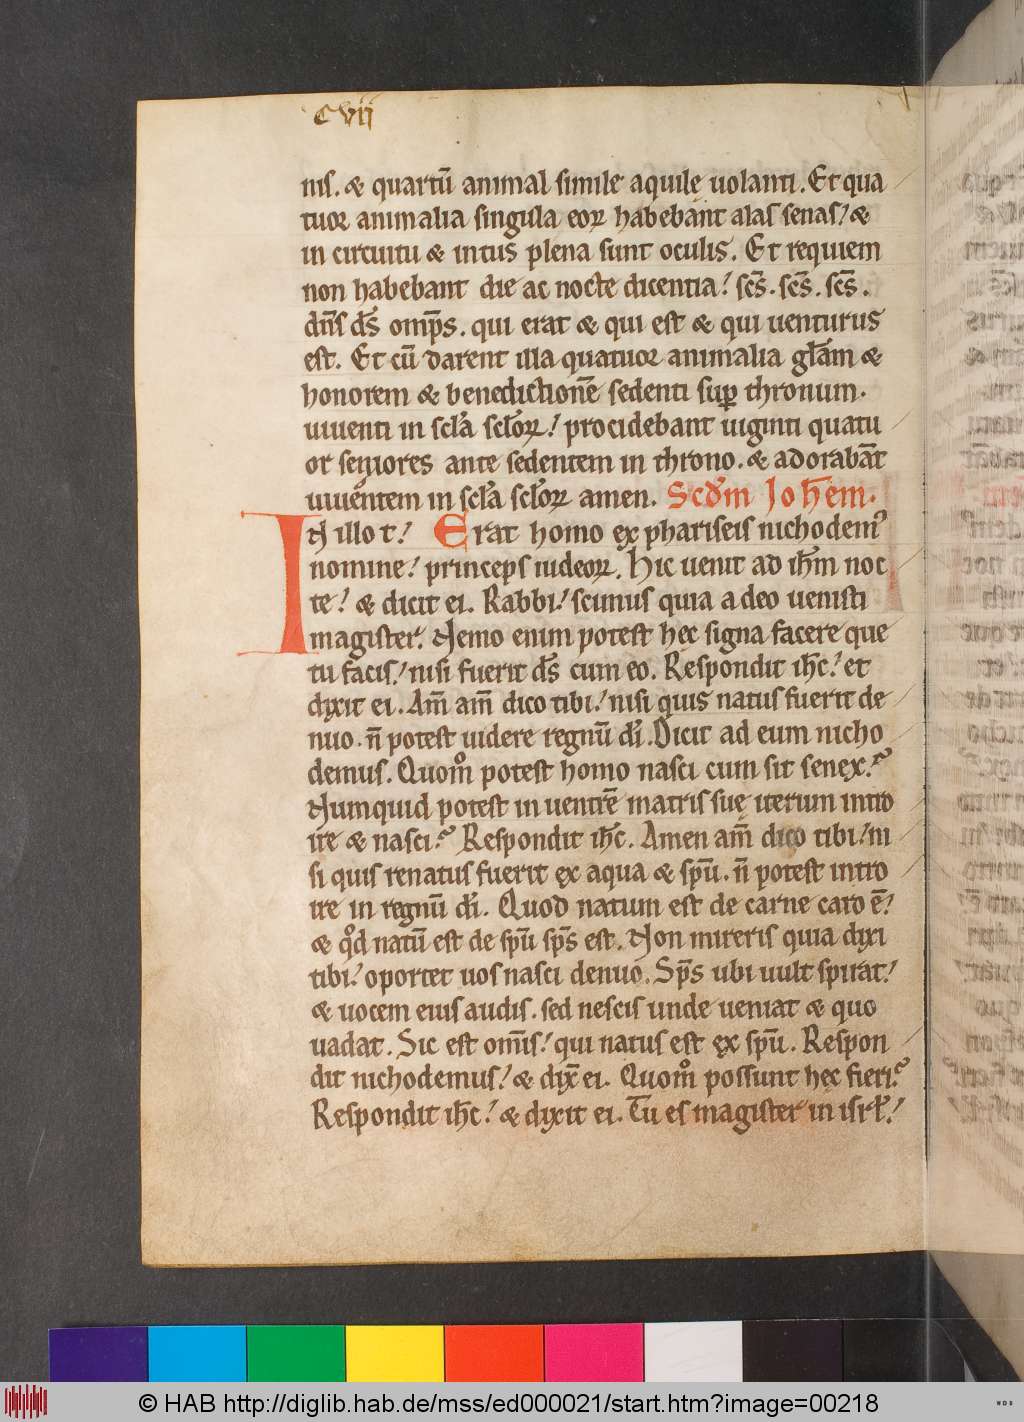 cvii
nis. & quartū animal simile aquilę uolanti. Et qua
tuor animalia singula eoꝝ habebant alas senas! &
in circuitu & intus plena sunt oculis. Et requiem
non habebant die ac nocte dicentia! scs̄. scs̄. scs̄.
dn̄s ds̄ omp̄s. qui erat & qui est & qui uenturus
est. Et cū darent illa quatuor animalia glām &
honorem & benedictionē sedenti suꝑ thronum.
uiuenti in scl̄a scl̄oꝝ! procidebant uiginti quatu
or seniores ante sedentem in throno. & adorabāt
uiuentem in scl̄a scl̄oꝝ amen. Scd̄m Joh̄em.
In illo t! Erat homo ex phariseis nichodemꝰ
nomine! princeps iudeoꝝ. Hic uenit ad ih̄m noc
te! & dicit ei. Rabbi! scimus quia a deo uenisti
magister. Nemo enim potest hec signa facere que
tu facis! nisi fuerit ds̄ cum eo. Respondit ih̄c! et
dixit ei. Am̄ am̄ dico tibi! nisi quis natus fuerit de
nuo. n̄ potest uidere regnū di. Dicit ad eum nicho
demus. Quom̊ potest homo nasci cum sit senex?
Numquid potest in uentrē matris suę iterum intro
ire & nasci? Respondit ih̄c. Amen am̄ dico tibi! ni
si quis renatus fuerit ex aqua & sp̄u. n̄ potest intro
ire in regnū di. Quod natum est de carne caro ē!
& qd̊ natū est de sp̄u sp̄s est. Non mireris quia dixi
tibi! oportet uos nasci denuo. Sp̄s ubi uult spirat!
& uocem eius audis. sed nescis unde ueniat & quo
uadat. Sic est omīs! qui natus est ex sp̄u. Respon
dit nichodemus! & dix̄ ei. Quom̊ possunt hec fieri?
Respondit ih̄c! & dixit ei. Tu es magister in isrl̄!
© HAB http://diglib.hab.de/mss/ed000021/start.htm?image=00218